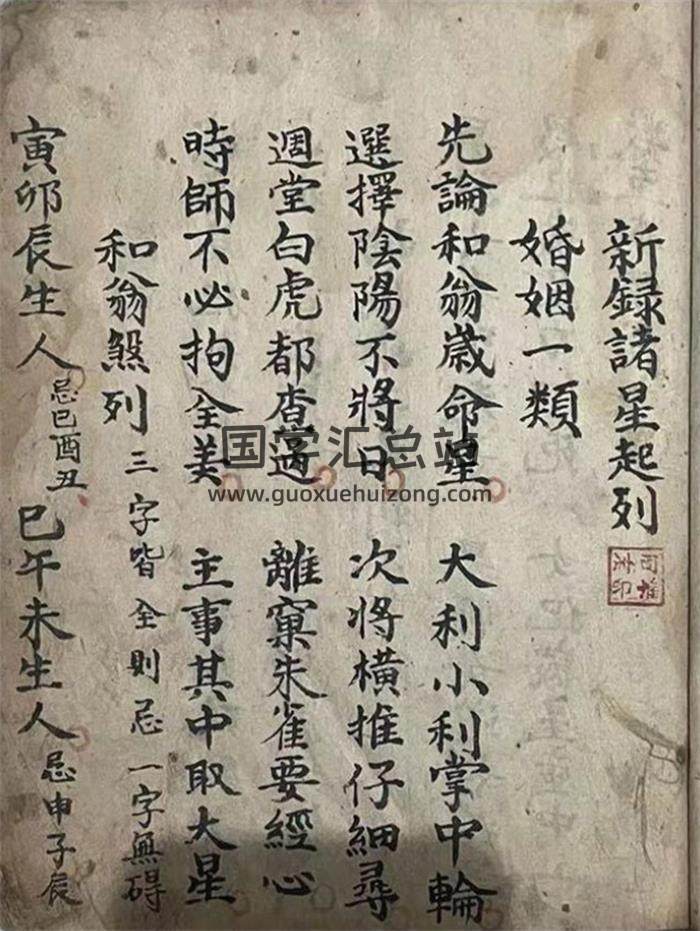 新録諸星起列
婚姻一類
先論和翁歳命星 大利小利掌中輪
選擇陰陽不將日 次將橫推仔細尋
週堂白虎都查過 離窠朱雀要經心
時師不必拘全美 主事其中取大星
和翁煞列 三字皆全則忌一字無碍
寅卯辰生人 忌巳酉丑 巳午未生人 忌申子辰
国学汇总站
www.guoxuehuizong.com